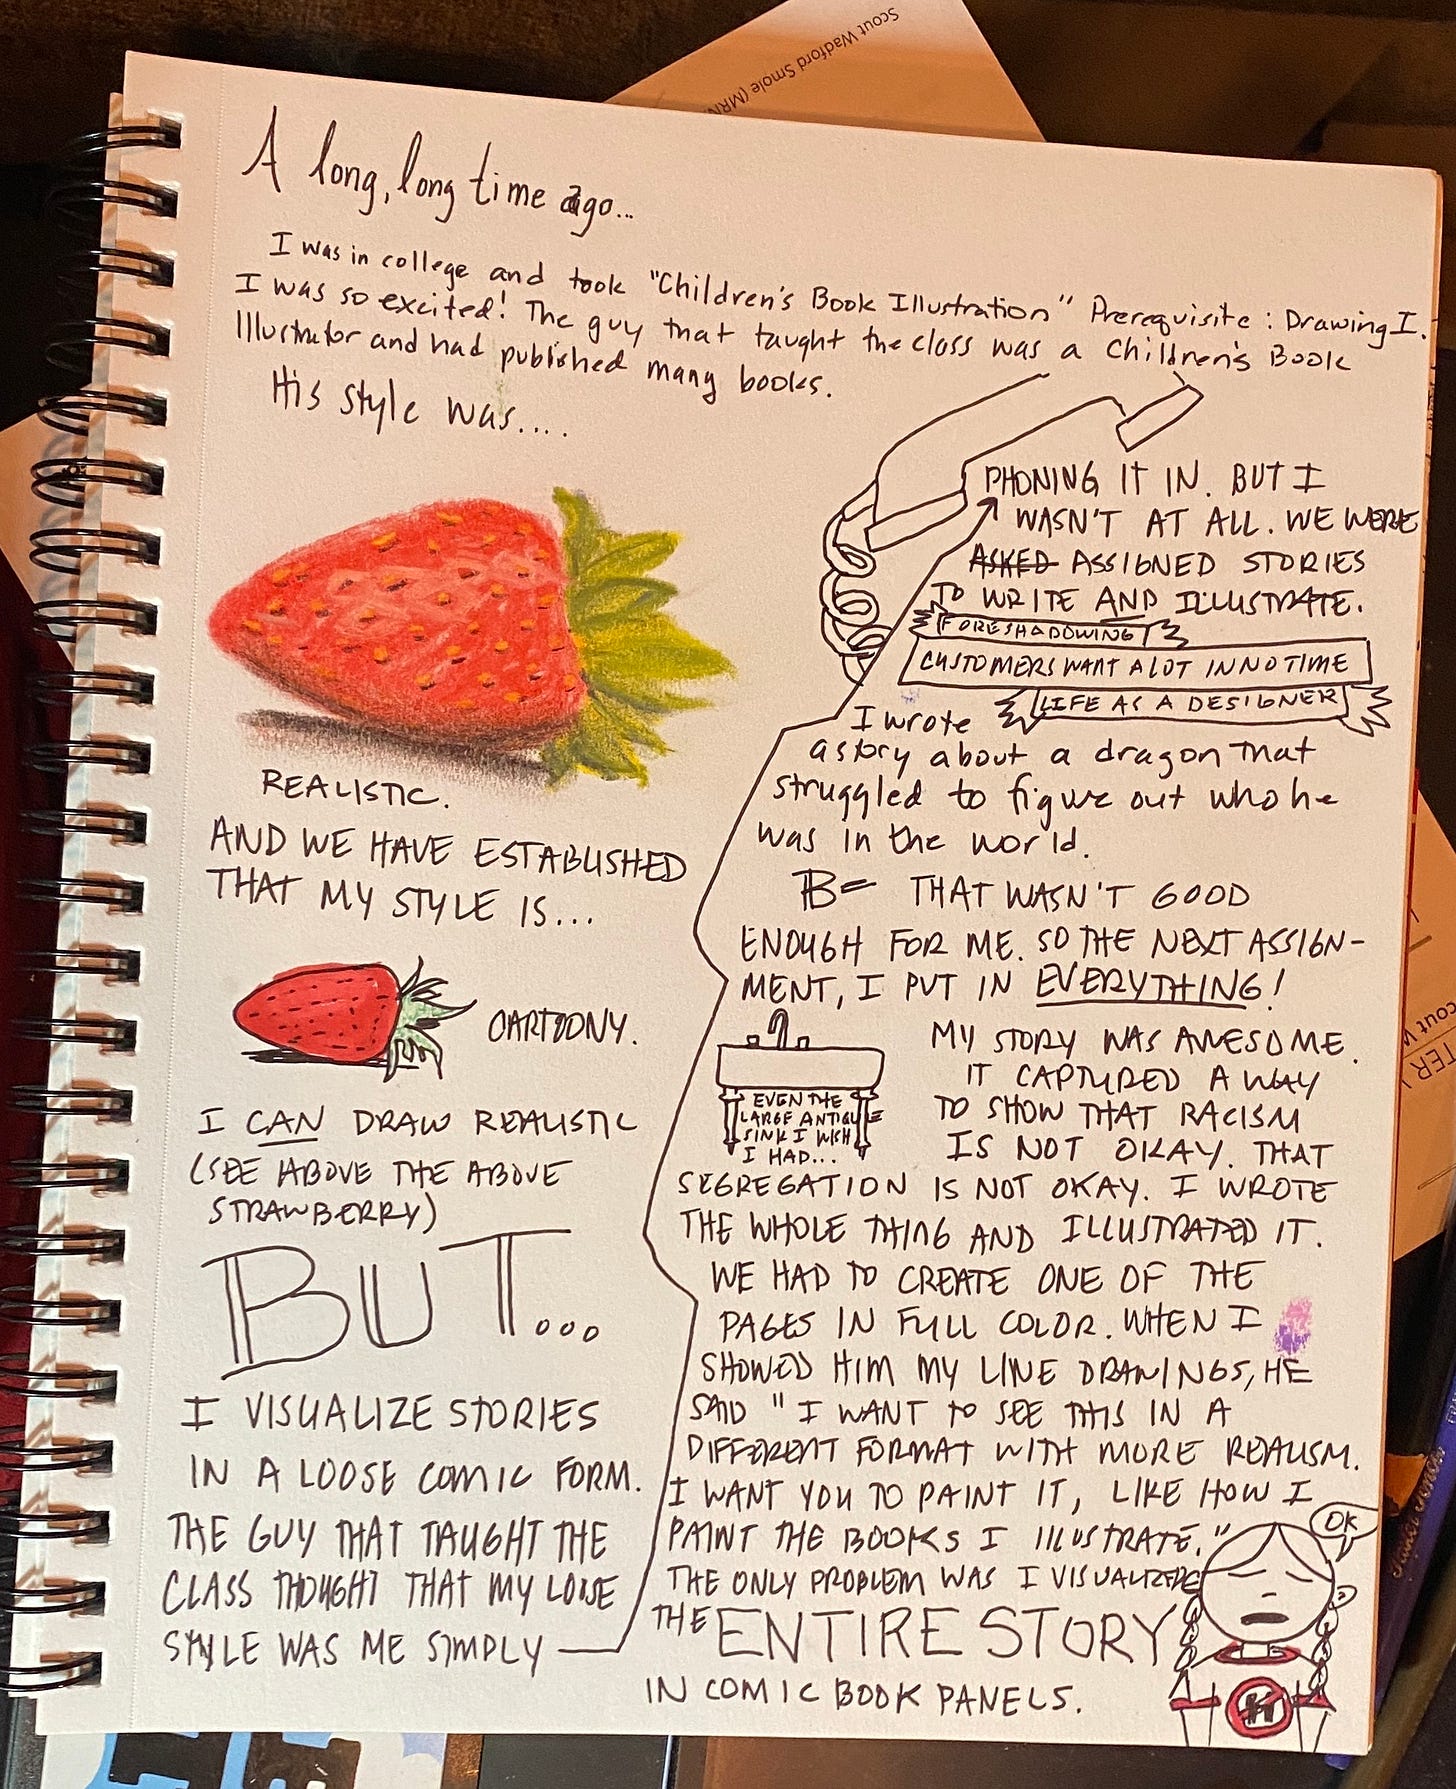 Scout Wadford Smole (MRN
A long, long time ago...
I was in college and took "Children's Book Illustration" Prerequisite: Drawing I.
I was so excited! The guy that taught the class was a Children's Book
Illustrator and had published many books.
His style was....
REALISTIC.
AND WE HAVE ESTABLISHED
THAT MY STYLE IS...
CARTOONY.
I CAN DRAW REALISTIC
(SEE ABOVE THE ABOVE
STRAWBERRY)
BUT...
I VISUALIZE STORIES
IN A LOOSE COMIC FORM.
THE GUY THAT TAUGHT THE
CLASS THOUGHT THAT MY LOOSE
STYLE WAS ME SIMPLY
PHONING IT IN. BUT I
WASN'T AT ALL. WE WERE
ASKED ASSIGNED STORIES
TO WRITE AND ILLUSTRATE.
FORESHADOWING
CUSTOMERS WANT A LOT IN NO TIME
LIFE AS A DESIGNER
I wrote
a story about a dragon that
struggled to figure out who he
was in the world.
B- THAT WASN'T GOOD
ENOUGH FOR ME. SO THE NEXT ASSIGN-
MENT, I PUT IN EVERYTHING!
EVEN THE
LARGE ANTIQUE
SINK I WISH
I HAD...
MY STORY WAS AWESOME.
IT CAPTURED A WAY
TO SHOW THAT RACISM
IS NOT OKAY. THAT
SEGREGATION IS NOT OKAY. I WROTE
THE WHOLE THING AND ILLUSTRATED IT.
WE HAD TO CREATE ONE OF THE
PAGES IN FULL COLOR. WHEN I
SHOWED HIM MY LINE DRAWINGS, HE
SAID "I WANT TO SEE THIS IN A
DIFFERENT FORMAT WITH MORE REALISM.
I WANT YOU TO PAINT IT, LIKE HOW I
PAINT THE BOOKS I ILLUSTRATE."
THE ONLY PROBLEM WAS I VISUALIZED
THE ENTIRE STORY
IN COMIC BOOK PANELS.
OK